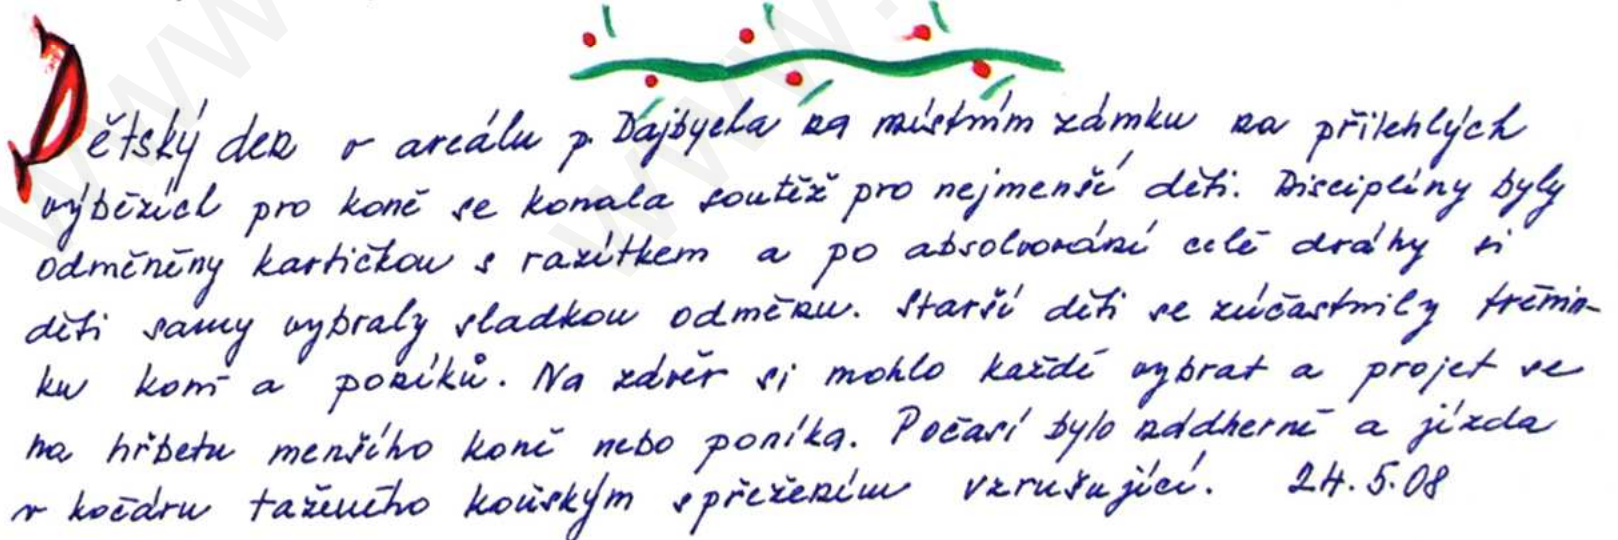 Dětský den v areálu p. Dajbycha na místním zámku na přilehlých
výbězích pro koně se konala soutěž pro nejmenší děti. Disciplíny byly
odměněny kartičkou s razítkem a po absolvování celé dráhy si
děti samy vybraly sladkou odměnu. Starší děti se zúčastnily trénin-
ku koní a poníků. Na závěr si mohlo každé vybrat a projet se
na hřbetu menšího koně nebo poníka. Počasí bylo nádherné a jízda
v kočáru taženého koňským spřežením vzrušující. 24.5.08